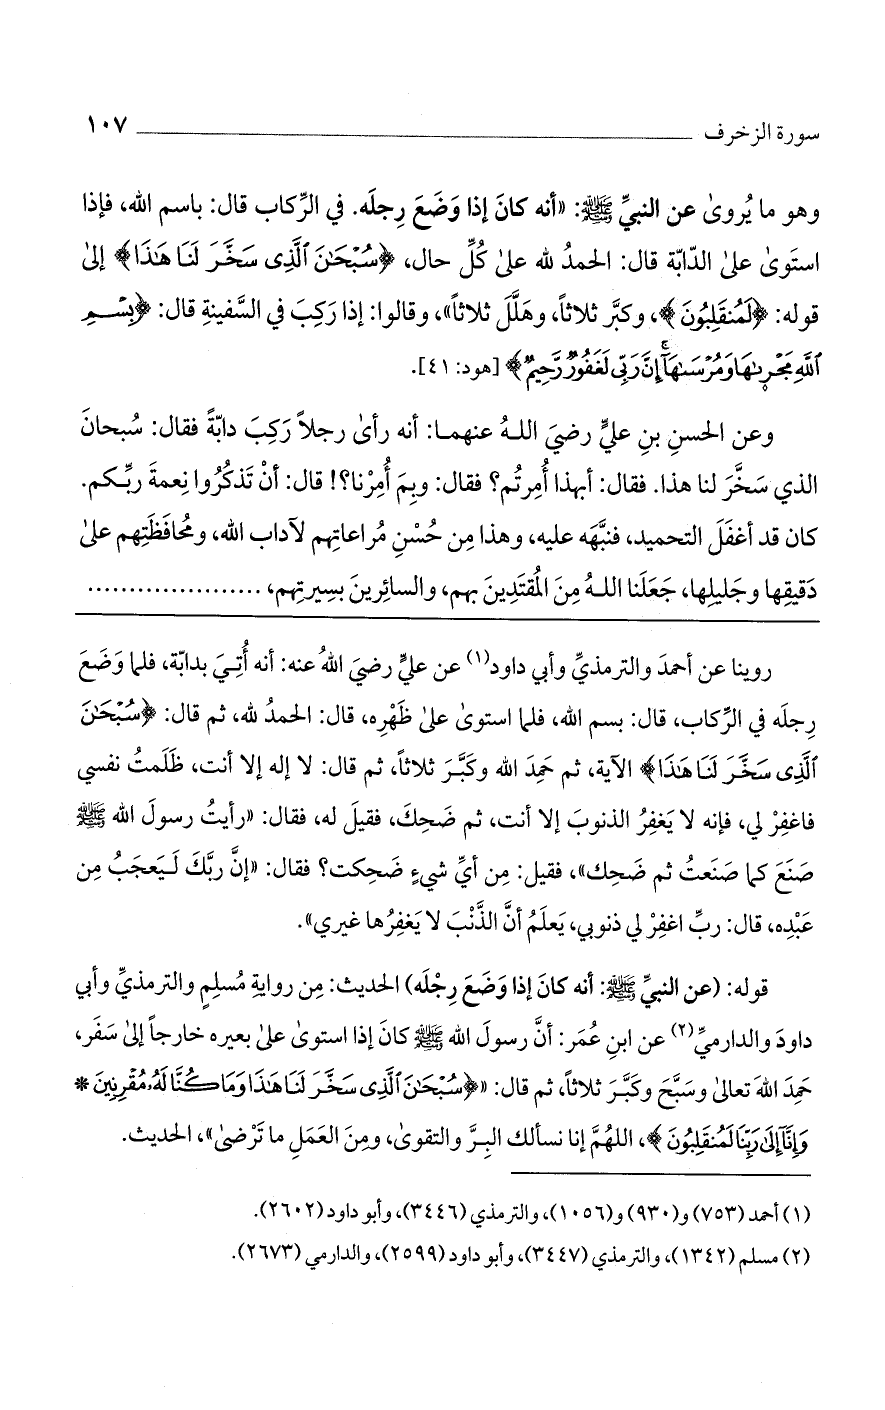 سورة الزخرف ١٠٧
وهو ما يُروىٰ عن النبيِّ ﷺ: «أنه كانَ إذا وَضَعَ رِجلَه. في الرِّكاب قال: باسم الله، فإذا
استَوىٰ علىٰ الدّابّة قال: الحمدُ لله علىٰ كُلِّ حال، ﴿سُبْحَٰنَ ٱلَّذِى سَخَّرَ لَنَا هَٰذَا﴾ إلىٰ
قوله: ﴿لَمُنقَلِبُونَ﴾، وكبَّر ثلاثاً، وهَلَّلَ ثلاثاً»، وقالوا: إذا رَكِبَ في السَّفينةِ قال: ﴿بِسْمِ
ٱللَّهِ مَجْر۪ىٰهَا وَمُرْسَىٰهَآ إِنَّ رَبِّى لَغَفُورٌ رَّحِيمٌ﴾ [هود: ٤١].
وعن الحسنِ بنِ عليٍّ رضيَ اللهُ عنهما: أنه رأىٰ رجلاً رَكِبَ دابّةً فقال: سُبحانَ
الذي سَخَّرَ لنا هذا. فقال: أبهذا أُمِرتُم؟ فقال: وبِمَ أُمِرْنا؟! قال: أنْ تَذكُرُوا نِعمةَ ربِّكم.
كان قد أغفَلَ التحميد، فنبَّهَه عليه، وهذا مِن حُسْنِ مُراعاتِهم لآداب الله، ومُحافَظَتِهم علىٰ
دَقيقِها وجَليلِها، جَعَلَنا اللهُ مِنَ المُقتَدِينَ بهم، والسائرينَ بسِيرتِهم، .....................
روينا عن أحمدَ والترمذيِّ وأبي داود(١) عن عليٍّ رضيَ اللهُ عنه: أنه أُتِيَ بدابّة، فلما وَضَعَ
رِجلَه في الرِّكاب، قال: بسم الله، فلما استوىٰ علىٰ ظَهْرِه، قال: الحمدُ لله، ثم قال: ﴿سُبْحَٰنَ
ٱلَّذِى سَخَّرَ لَنَا هَٰذَا﴾ الآية، ثم حَمِدَ الله وكَبَّرَ ثلاثاً، ثم قال: لا إله إلا أنت، ظَلَمتُ نفسي
فاغفِرْ لي، فإنه لا يَغفِرُ الذنوبَ إلا أنت، ثم ضَحِكَ، فقيلَ له، فقال: «رأيتُ رسولَ الله ﷺ
صَنَعَ كما صَنَعتُ ثم ضَحِك»، فقيل: مِن أيِّ شيءٍ ضَحِكت؟ فقال: «إنَّ ربَّكَ لَيَعجَبُ مِن
عَبْدِه، قال: ربِّ اغفِرْ لي ذنوبي، يَعلَمُ أنَّ الذَّنْبَ لا يَغفِرُها غيري».
قوله: (عن النبيِّ ﷺ: أنه كانَ إذا وَضَعَ رِجْلَه) الحديث: مِن روايةِ مُسلِمٍ والترمذيِّ وأبي
داودَ والدارميِّ(٢) عن ابنِ عُمَر: أنَّ رسولَ الله ﷺ كانَ إذا استوىٰ علىٰ بعيره خارجاً إلىٰ سَفَر،
حَمِدَ اللهَ تعالىٰ وسَبَّحَ وكَبَّرَ ثلاثاً، ثم قال: «﴿سُبْحَٰنَ ٱلَّذِى سَخَّرَ لَنَا هَٰذَا وَمَا كُنَّا لَهُۥ مُقْرِنِينَ *
وَإِنَّآ إِلَىٰ رَبِّنَا لَمُنقَلِبُونَ﴾، اللهُمَّ إنا نسألك البِرَّ والتقوىٰ، ومِنَ العَمَلِ ما تَرْضىٰ»، الحديث.
(١) أحمد (٧٥٣) و(٩٣٠) و(١٠٥٦)، والترمذي (٣٤٤٦)، وأبو داود (٢٦٠٢).
(٢) مسلم (١٣٤٢)، والترمذي (٣٤٤٧)، وأبو داود (٢٥٩٩)، والدارمي (٢٦٧٣).